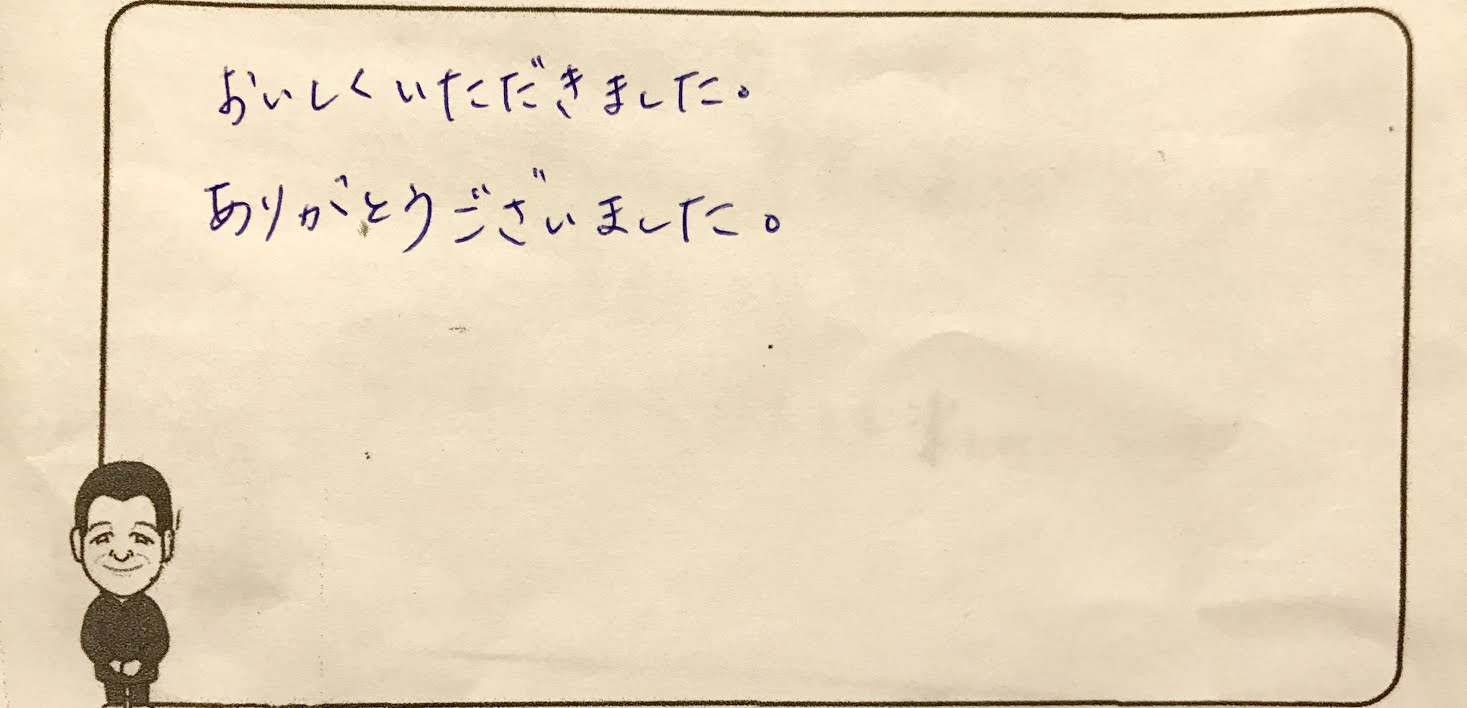 おいしくいただきました。
ありがとうございました。